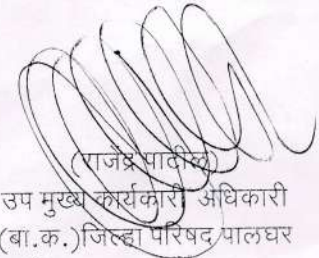 (राजेंद्र पाटील)
उप मुख्य कार्यकारी अधिकारी
(बा.क.)जिल्हा परिषद पालघर